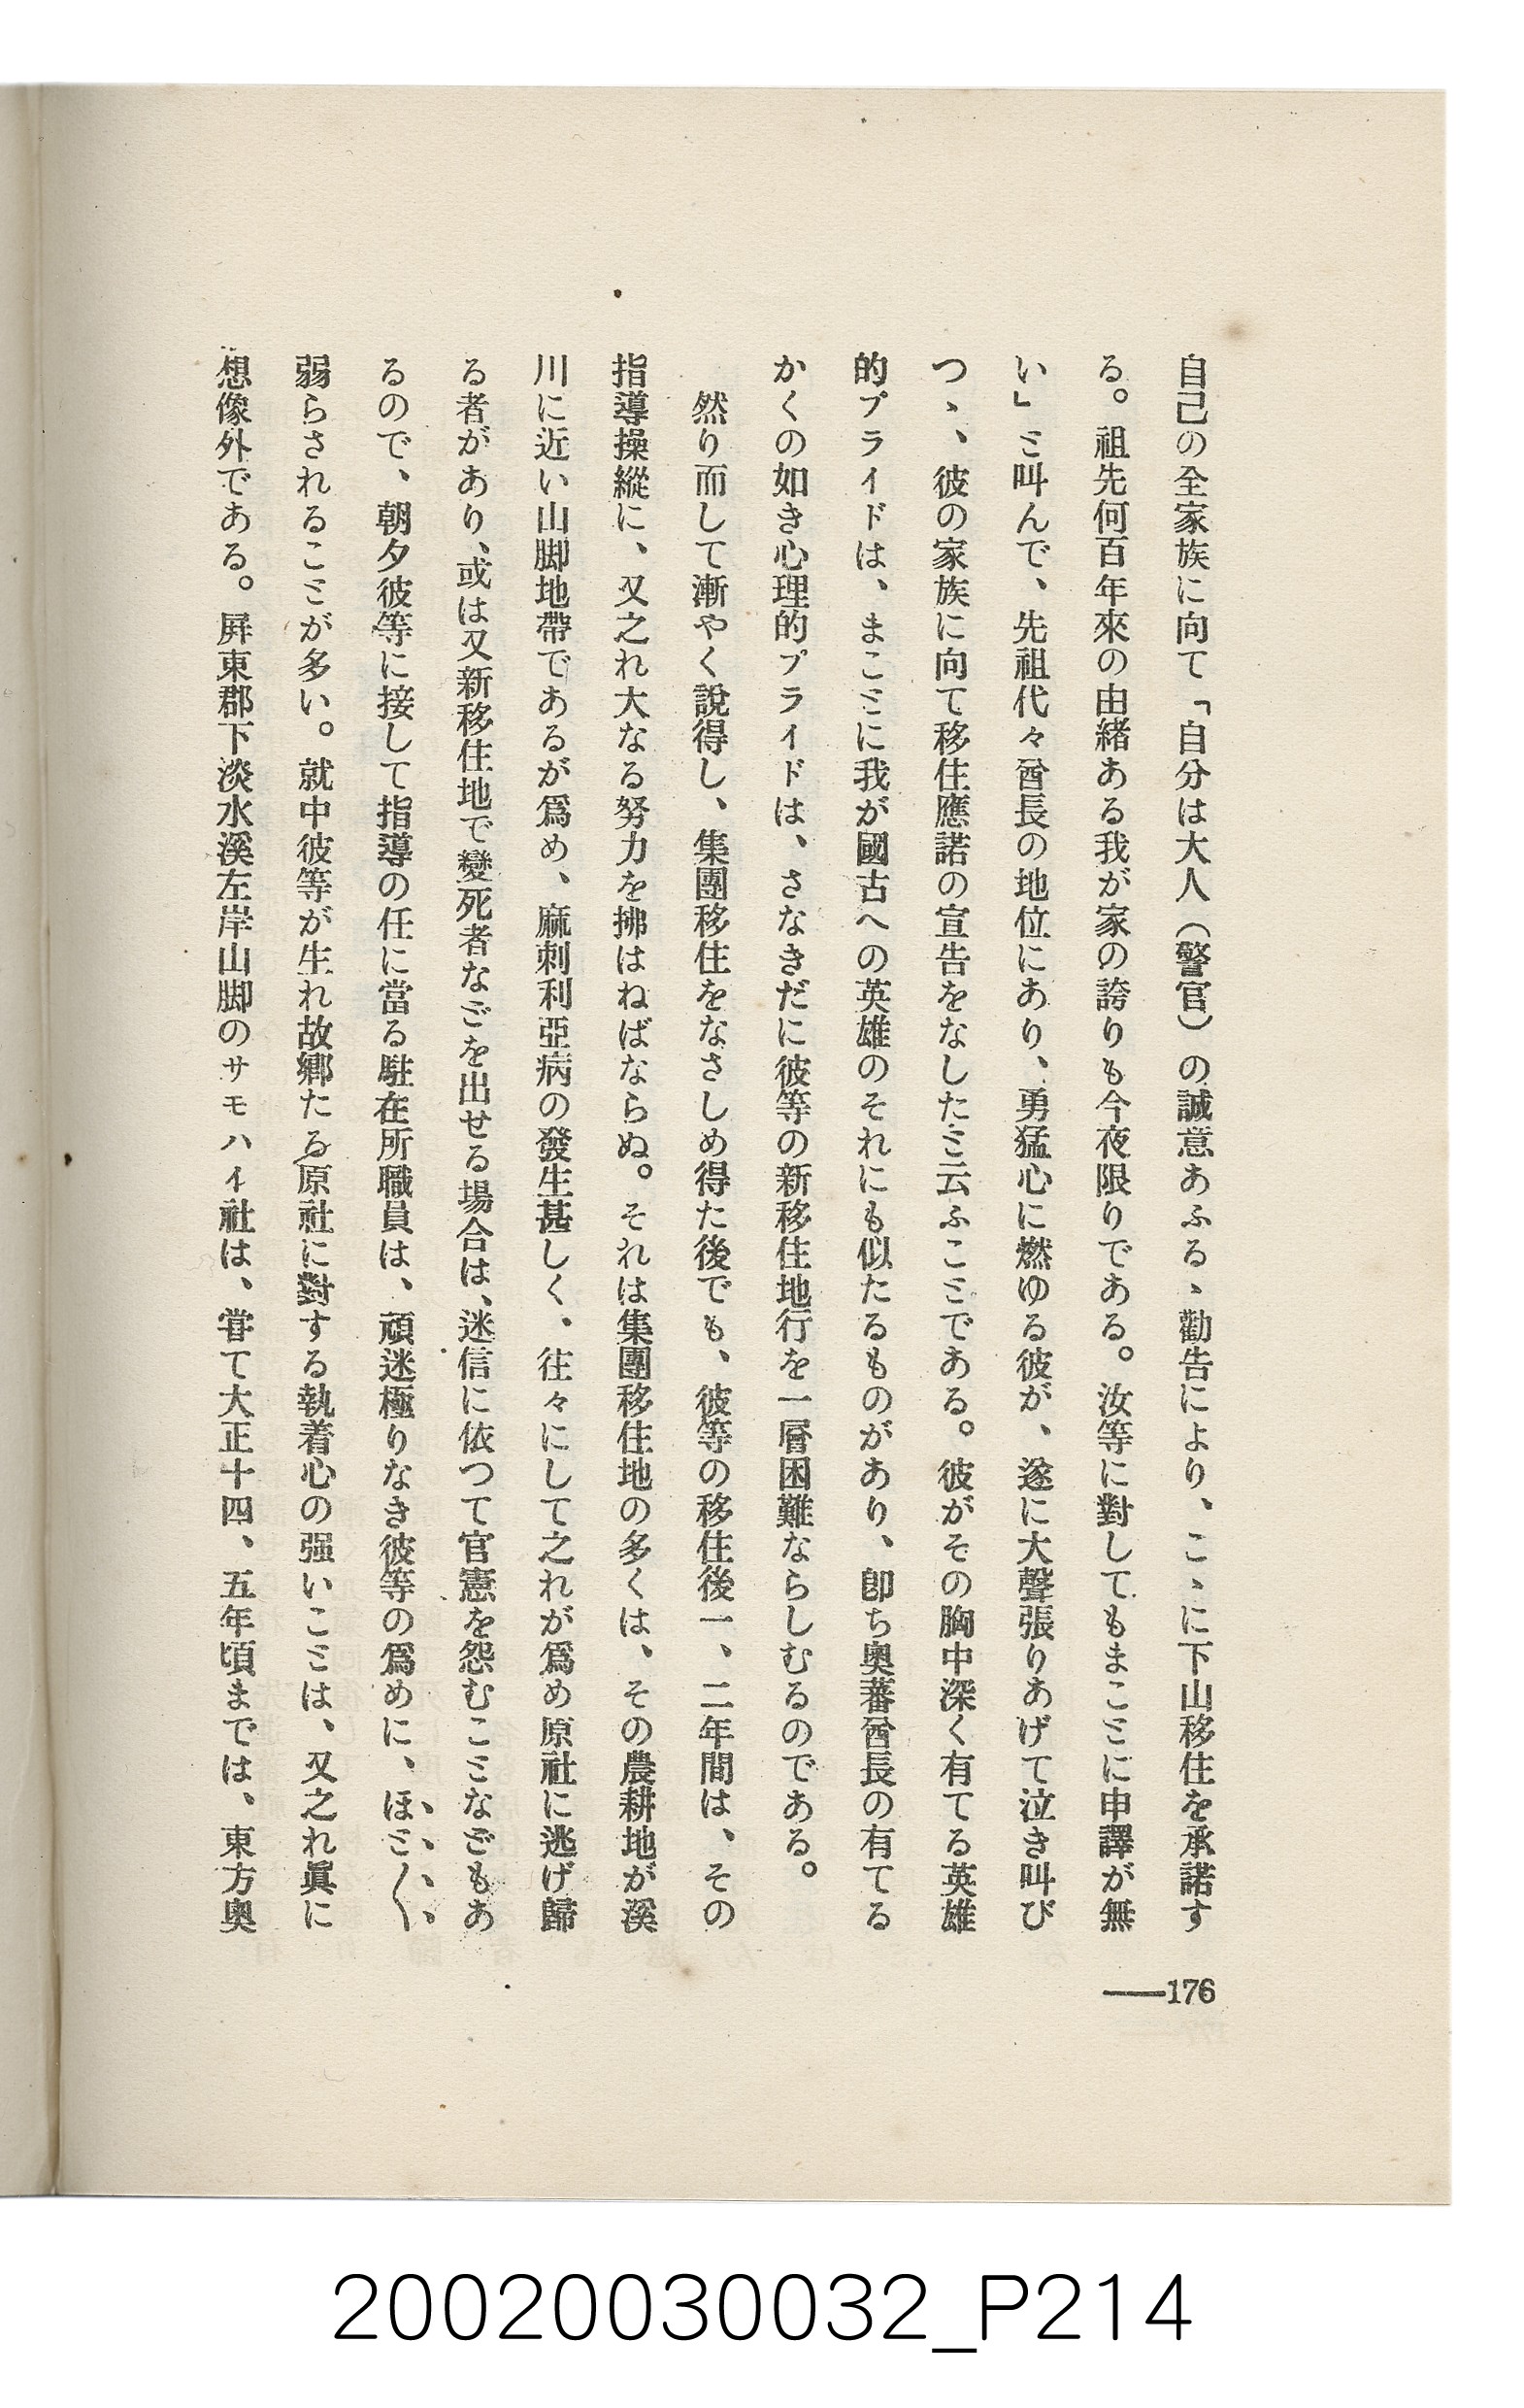 自己の全家族に向て「自分は大人（警官）の誠意あふるヽ勸告により、こヽに下山移住を承諾す
る。祖先何百年來の由緒ある我が家の誇りも今夜限りである。汝等に對してもまこミに申譯が無
い」ミ叫んで、先祖代々酋長の地位にあり、勇猛心に燃ゆる彼が、遂に大聲張りあげて泣き叫び
つヽ、彼の家族に向て移住應諾の宣告をなしたミ云ふこミである。彼がその胸中深く有てる英雄
的プライドは、まこミに我が國古への英雄のそれにも似たるものがあり、卽ち奧蕃酋長の有てる
かくの如き心理的プライドは、さなきだに彼等の新移住地行を一層困難ならしむるのである。
然り而して漸やく說得し、集團移住をなさしめ得た後でも、彼等の移住後一、二年間は、その
指導操縱に、又之れ大なる努力を拂はねばならぬ。それは集團移住地の多くは、その農耕地が溪
川に近い山脚地帶であるが爲め、麻刺利亞病の發生甚しく、往々にして之れが爲め原社に逃げ歸
る者があり、或は又新移住地で變死者なごを出せる場合は、迷信に依つて官憲を怨むこミなごもあ
るので、朝夕彼等に接して指導の任に當る駐在所職員は、頑迷極りなき彼等の爲めに、ほミ〱
弱らされるこミが多い。就中彼等が生れ故鄕たる原社に對する執着心の强いこミは、又之れ眞に
想像外である。屛東郡下淡水溪左岸山脚のサモハイ社は、甞て大正十四、五年頃までは、東方奧
176
20020030032_P214